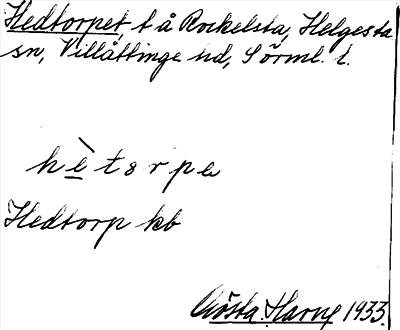 Hedtorpet, t å Rockelsta, Helgesta
sn, Villåttinge hd, Sörml. l.
hètorpe
Hedtorp kb
Gösta Harne 1933